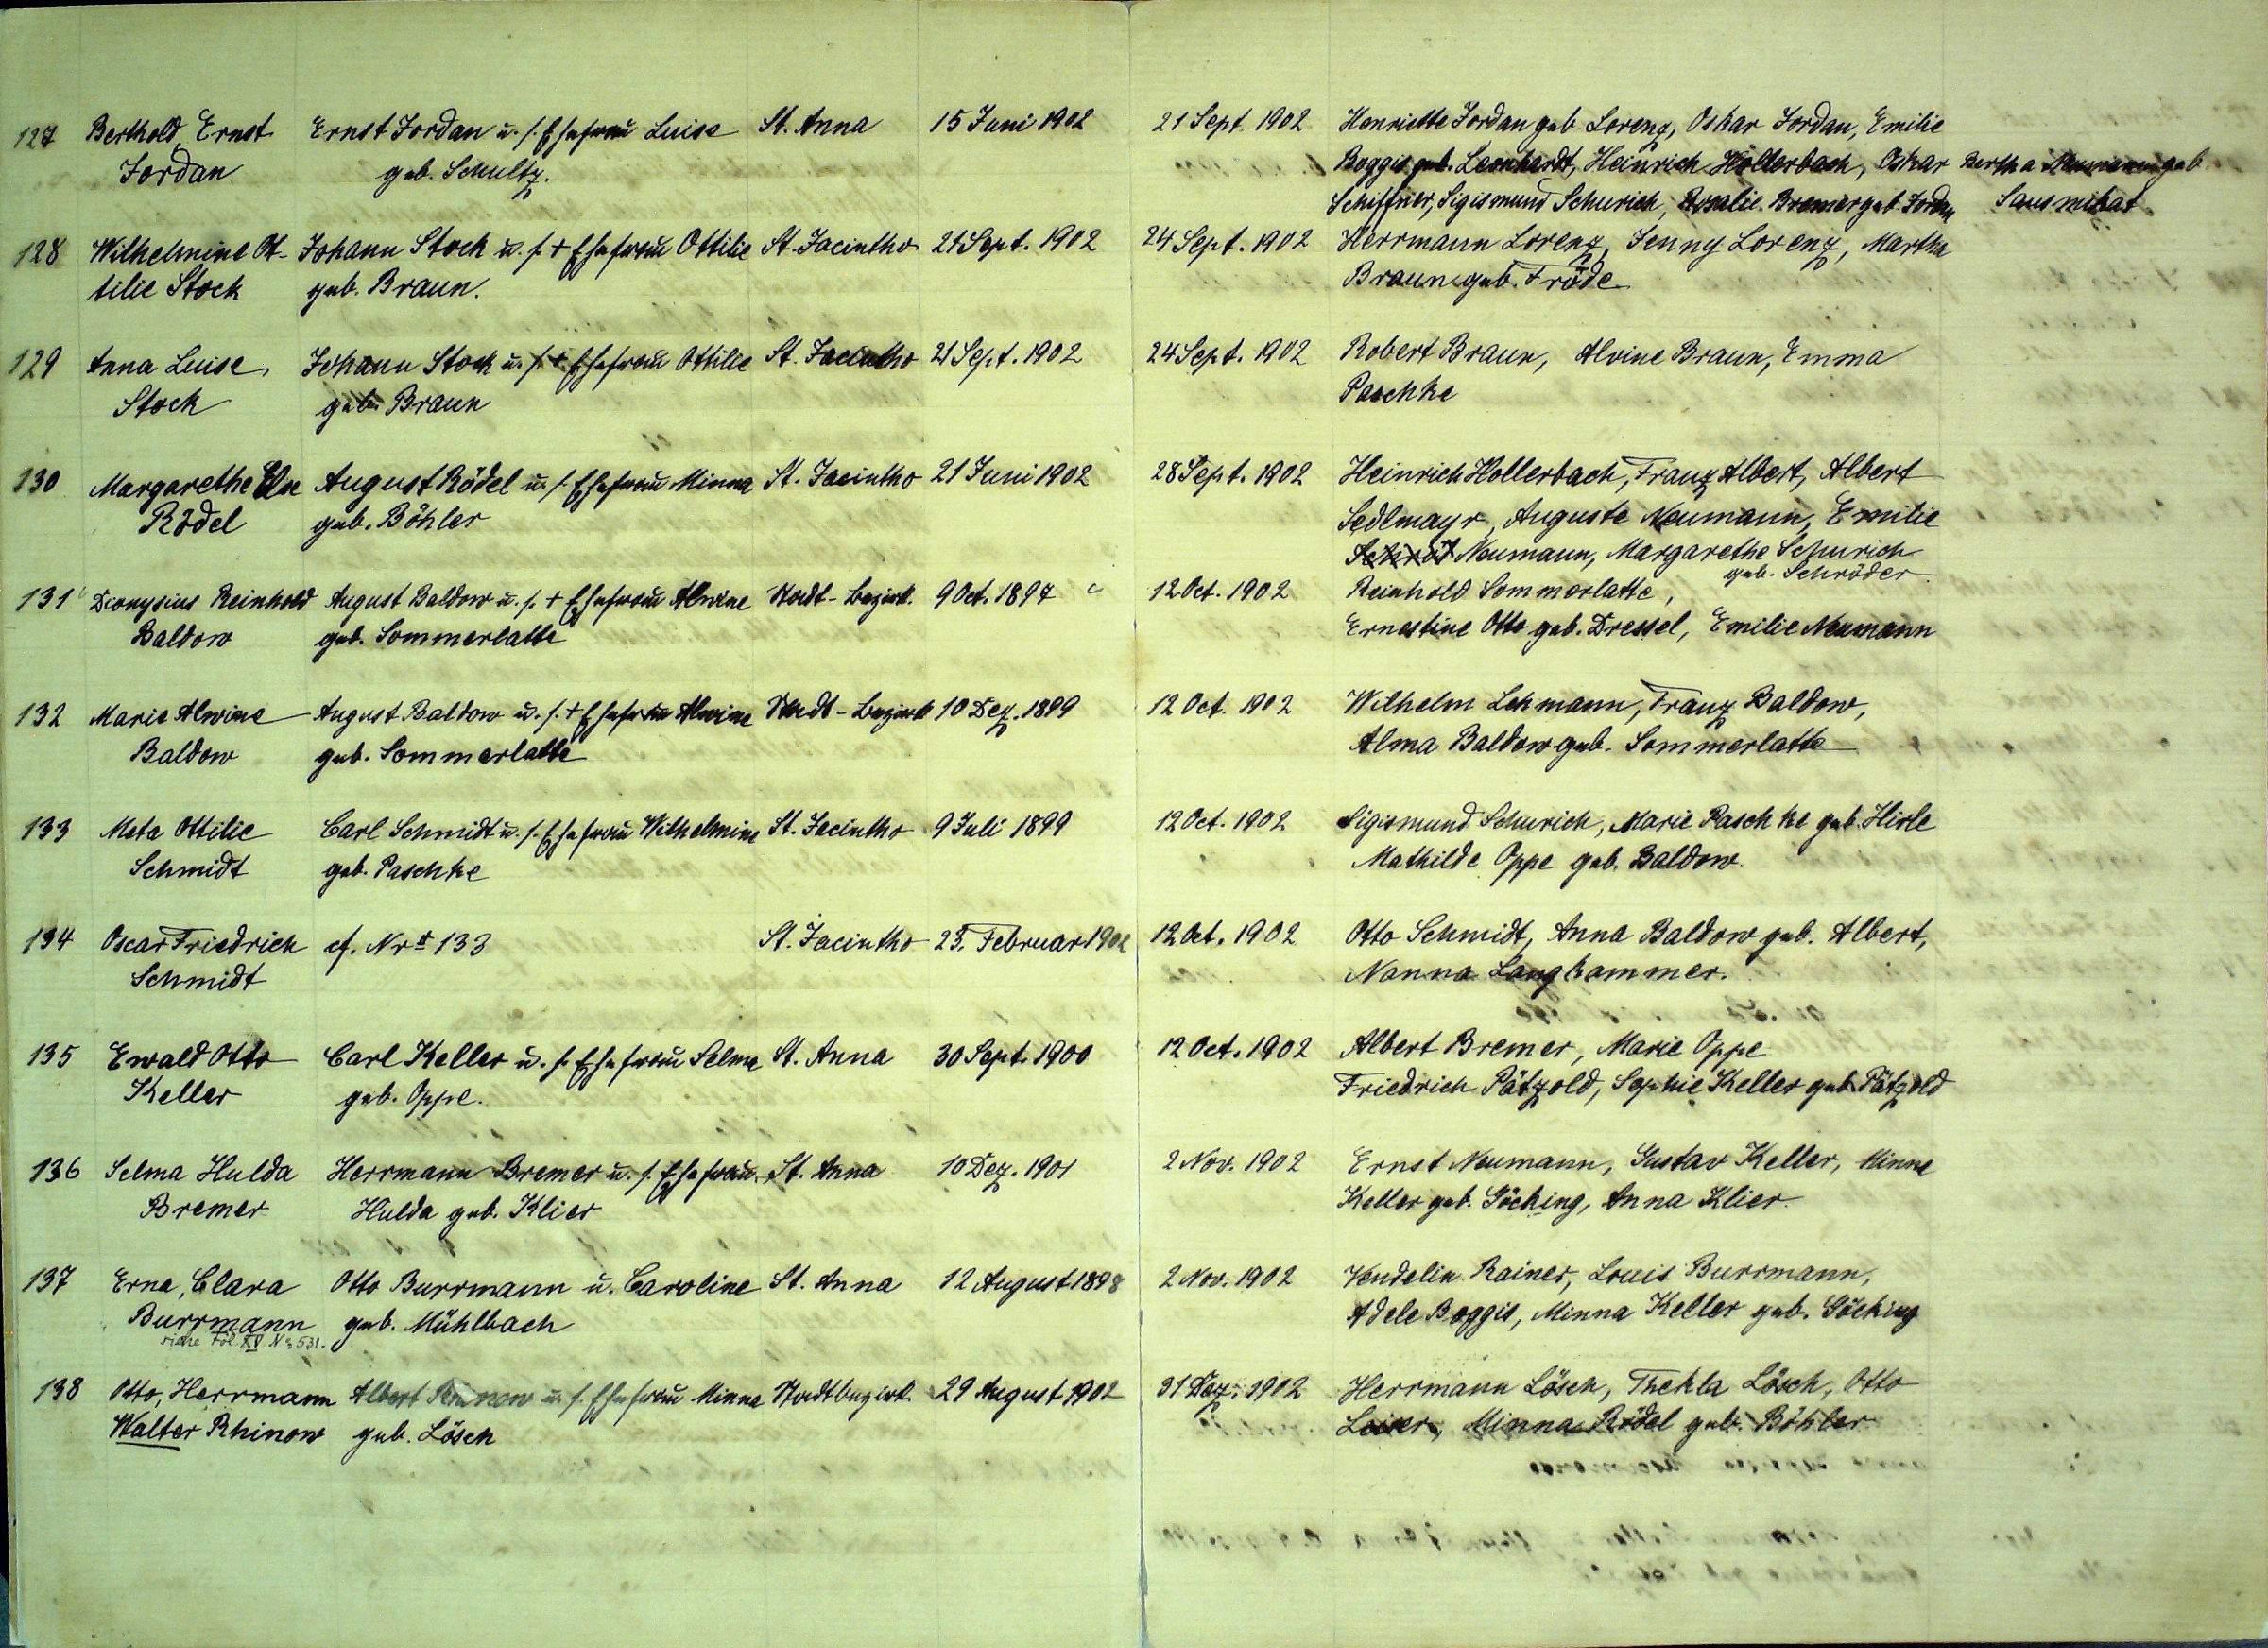 127 Berthold, Ernst Ernst Jordan u. s. Ehefrau Luise St. Anna 15 Juni 1902 21 Sept. 1902 Henriette Jordan geb. Lorenz, Oskar Jordan, Emilie
Jordan geb. Schultz. Boggis geb. Leonhardt, Heinrich Hollerbach, Oskar Bertha Neumann geb
Schiffner, Sigismund Schurich, Rosalie Bremer geb. Jordan
128 Wilhelmine Ot- Johann Stock u. s. + Ehefrau Ottilie St. Jacintho 21 Sept. 1902 24 Sept. 1902 Herrmann Lorenz, Jenny Lorenz, Martha
tilie Stock geb. Braun. Braun geb. Fröde
129 Anna Luise Johann Stock u. s. + Ehefrau Ottilie St. Jacintho 21 Sept. 1902 24 Sept. 1902 Robert Braun, Alvine Braun, Emma
Stock geb. Braun Paschke
130 Margarethe Else August Rödel u. s. Ehefrau Minna St. Jacintho 21 Juni 1902 28 Sept. 1902 Heinrich Hollerbach, Franz Albert, Albert
Rödel geb. Böhler Sedlmayr, Auguste Neumann, Emilie
Neumann, Margarethe Schurich
geb. Schröder
131 Dionysius Reinhold August Baldow u. s. + Ehefrau Alwine Stadt-Bezirk. 9 Oct. 1897 12 Oct. 1902 Reinhold Sommerlatte,
Baldow geb. Sommerlatte Ernestine Otto geb. Dressel, Emilie Neumann
132 Marie Alwine August Baldow u. s. + Ehefrau Alwine Stadt-Bezirk 10 Dez. 1899 12 Oct. 1902 Wilhelm Lehmann, Franz Baldow,
Baldow geb. Sommerlatte Alma Baldow geb. Sommerlatte
133 Meta Ottilie Carl Schmidt u. s. Ehefrau Wilhelmine St. Jacintho 9 Juli 1899 12 Oct. 1902 Sigismund Schurich, Marie Paschke geb. Hirle
Schmidt geb. Paschke Mathilde Oppe geb. Baldow
134 Oscar Friedrich cf. Nr 133 St. Jacintho 23. Februar 1902 12 Oct. 1902 Otto Schmidt, Anna Baldow geb. Albert,
Schmidt Nanna Langhammer.
135 Ewald Otto Carl Keller u. s. Ehefrau Selma St. Anna 30 Sept. 1900 12 Oct. 1902 Albert Bremer, Marie Oppe
Keller geb. Oppe. Friedrich Pätzold, Sophie Keller geb. Pätzold
136 Selma Hulda Herrmann Bremer u. s. Ehefrau St. Anna 10 Dez. 1901 2 Nov. 1902 Ernst Neumann, Gustav Keller, Minna
Bremer Hulda geb. Klier Keller geb. Göcking, Anna Klier
137 Erna, Clara Otto Burrmann u. Caroline St. Anna 12 August 1898 2 Nov. 1902 Vendelin Rainer, Louis Burrmann,
Burrmann geb. Mühlbach Adele Boggis, Minna Keller geb. Göcking
siehe Fol. XV No 531.
138 Otto, Herrmann Albert Rhinow u. s. Ehefrau Minna Stadtbezirk 29 August 1902 31 Dez. 1902 Herrmann Lösch, Thekla Lösch, Otto
Walter Rhinow geb. Lösch Minna Rödel geb. Böhler